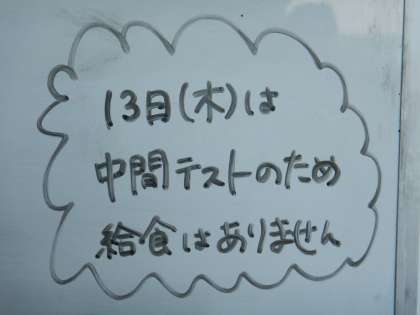 13日(木)は
中間テストのため
給食はありません